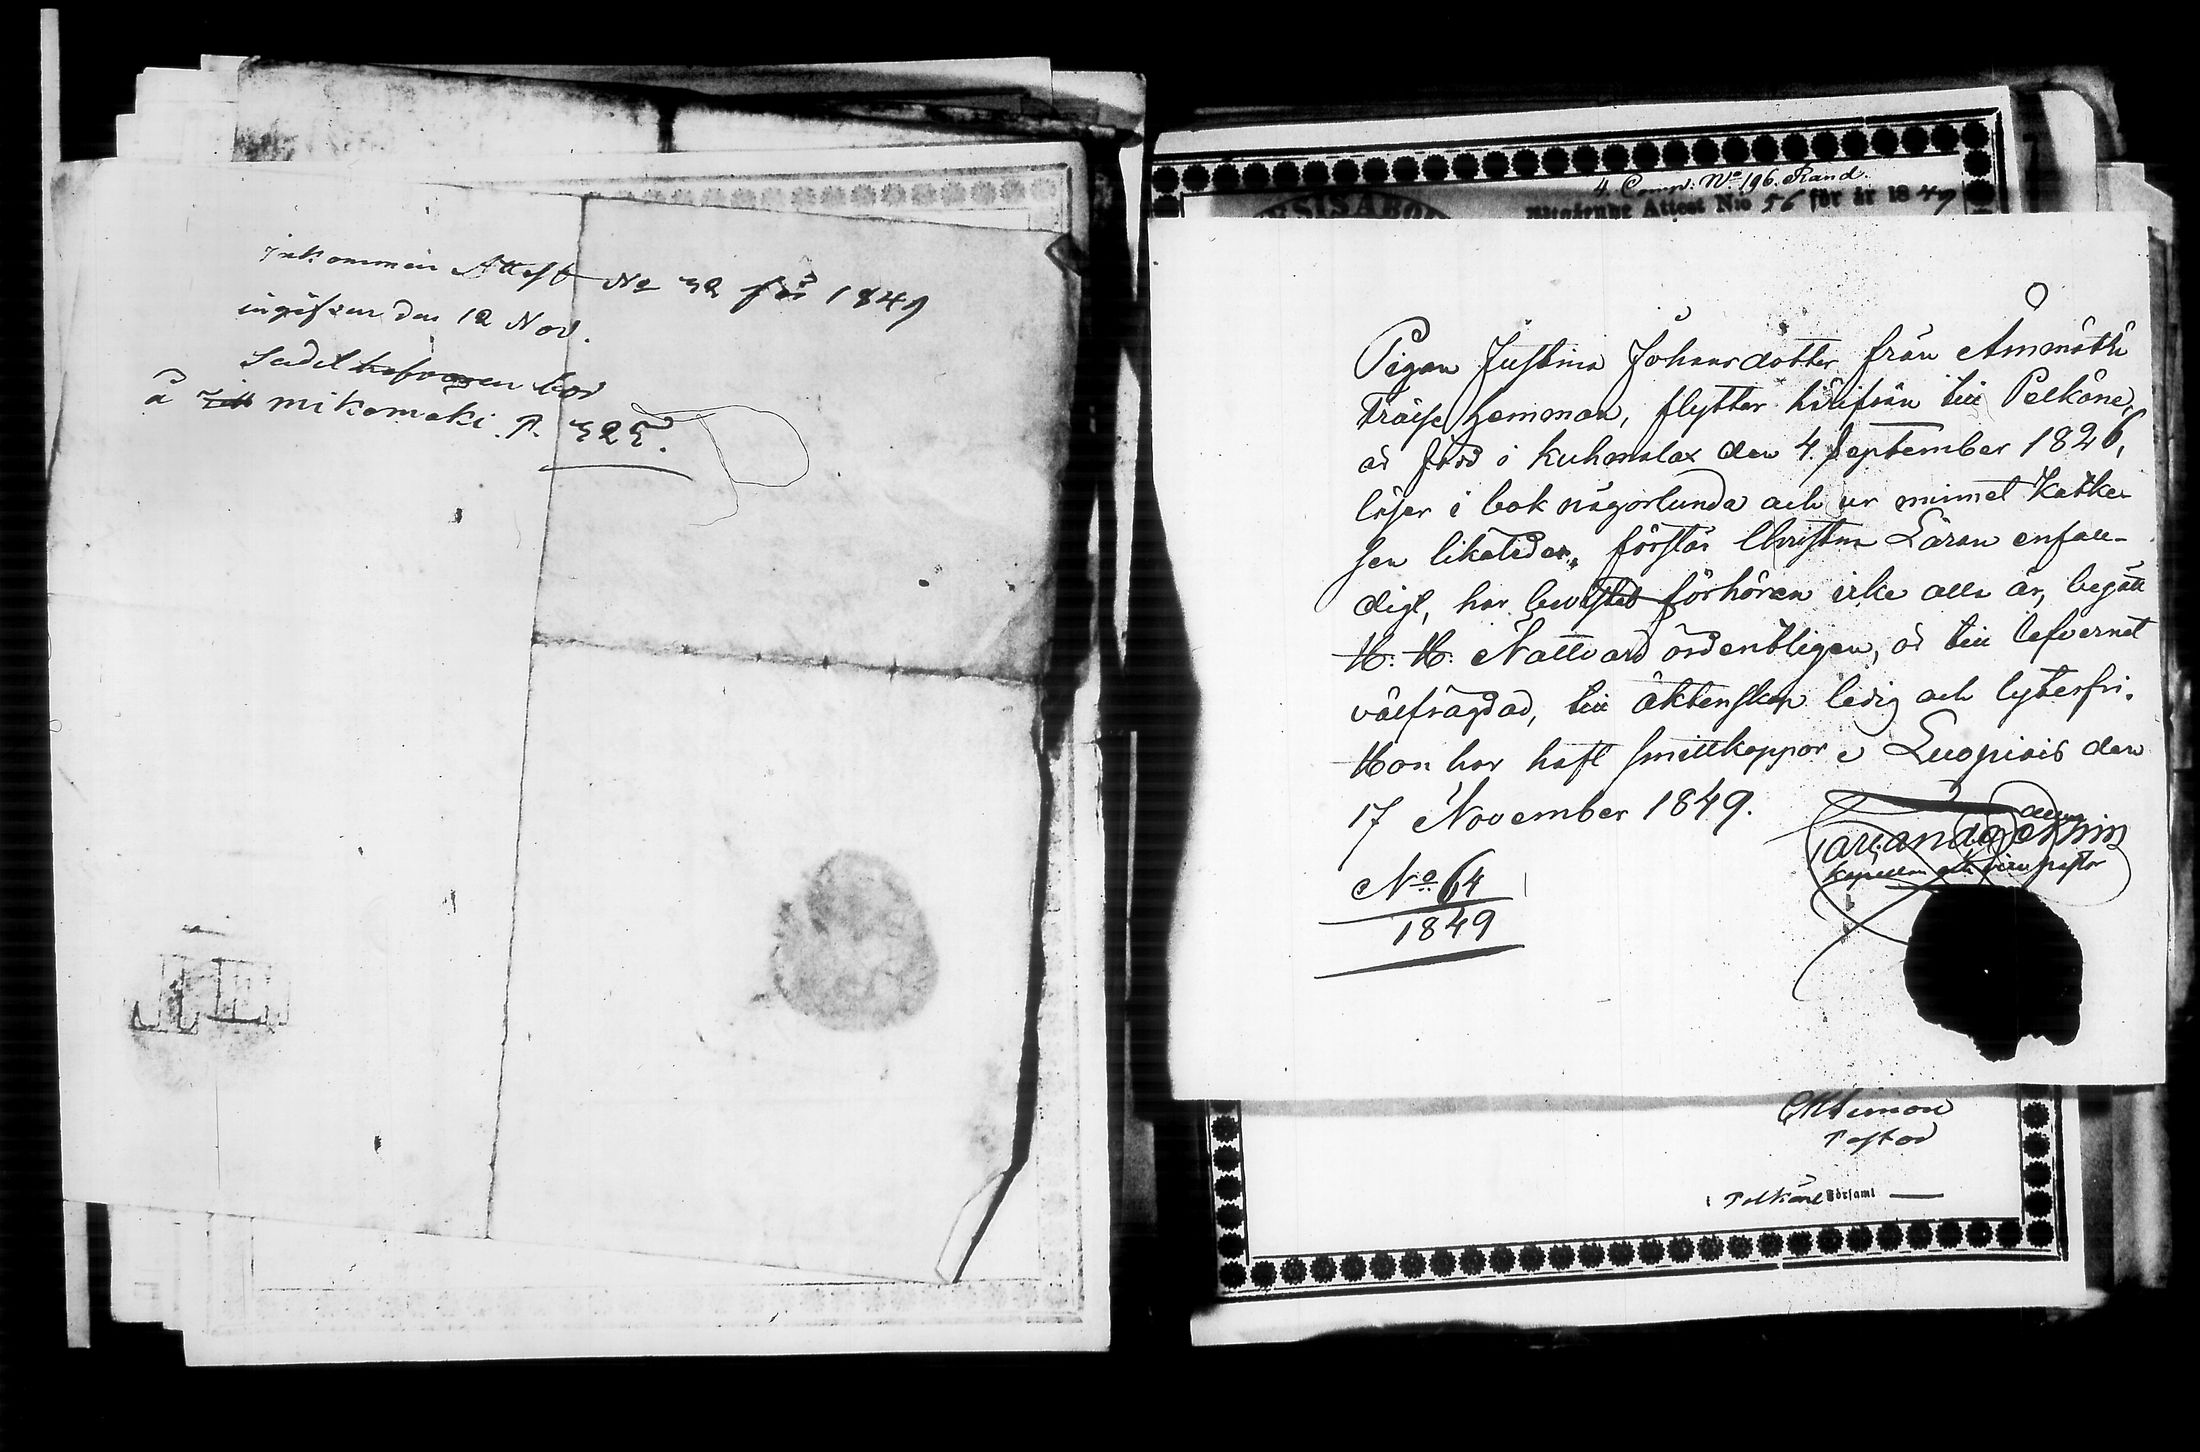 Inkommen Attest No 32 för 1849
ingifven den 12 Nov.
Sedel hafvaren bor
å mikomäki p. 325.
4 Comp: No 196. Rand.
Utgående Attest N:o 56 för år 1849
Pigan Justina Johansdotter från Ämmätti
Träise hemman, flyttar härifrån till Pelkäne,
är född i Kuhmalax den 4 September 1826,
läser i bok någorlunda och ur minnet Katke
sen likaledes, förstår Christna Läran enfal-
digt, har bevistat förhören icke alla år, begått
H. H. Nattvard ordentligen, är till lefvernet
välfrägdad, till äktenskap ledig och lyterfri.
Hon har haft smittkoppor. Luopiois den
17 November 1849.
No 64
1849
Kapellan och vice pastor
Pastor
i Pelkäne Församl